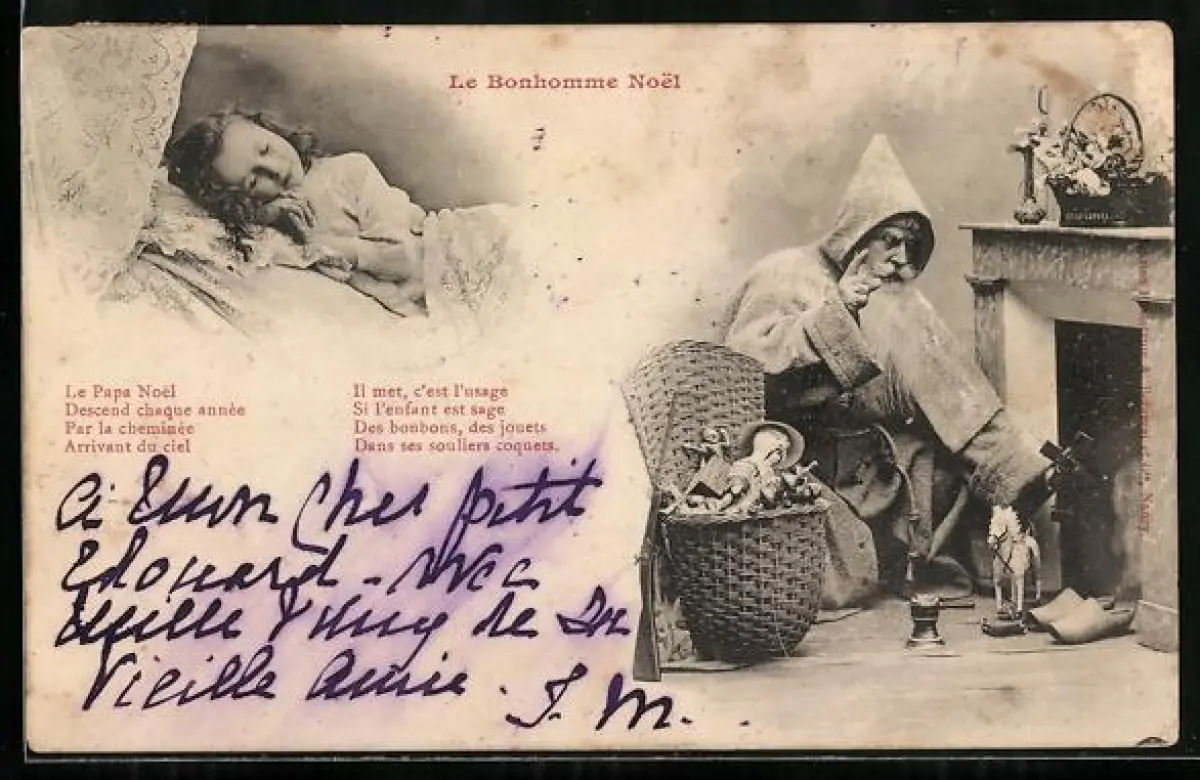 Le Bonhomme Noël
Le Papa Noël
Descend chaque année
Par la cheminée
Arrivant du ciel
Il met, c'est l'usage
Si l'enfant est sage
Des bonbons, des jouets
Dans ses souliers coquets.
cher petit
Edouard - avec
de Sa
Vieille Amie.
J. M.